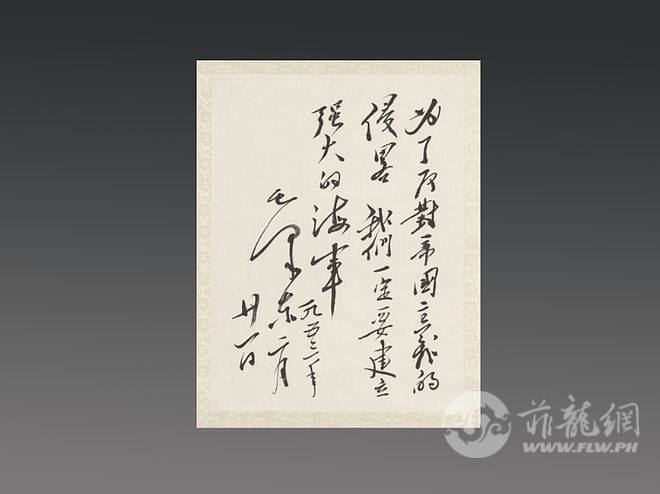 为了反對帝國主義的
侵畧 我們一定要建立
强大的海軍
毛澤东
一九五三年
二月
廿一日
菲龍網
WWW.FLW.PH